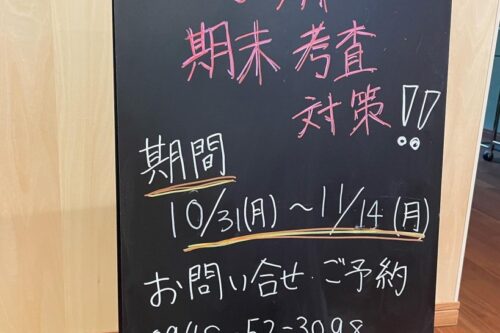 期末考査
対策!!
期間
10/31(月)~11/14(月)
お問い合せ・ご予約